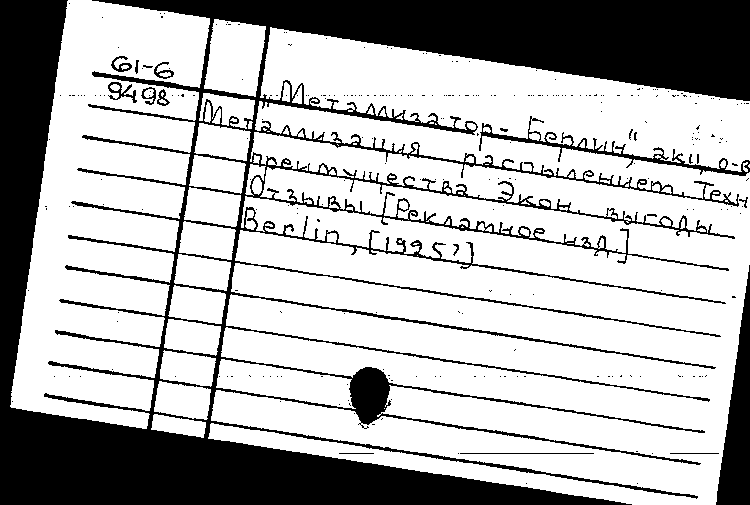 61-6
9498
"Металлизатор-Берлин", акц. о-в
Металлизация распылением. Техн
преимущества. Экон. выгоды
Отзывы [Рекламное изд.]
Berlin, [1925?]